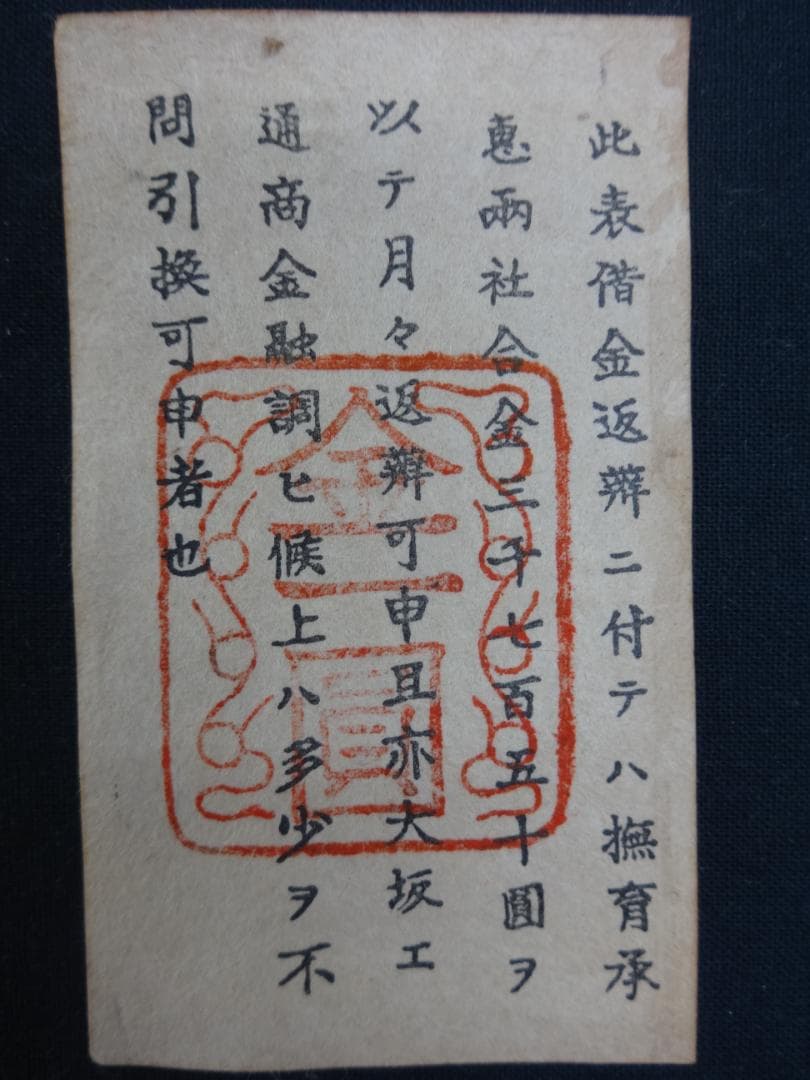 此表借金返辨ニ付テハ撫育承
恵兩社合金三千七百五十圓ヲ
以テ月々返辨可申且亦大坂エ
通商金融調ヒ候上ハ多少ヲ不
問引換可申者也
金二圓